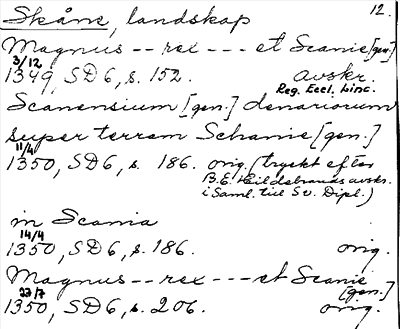 Skåne, landskap 12.
Magnus -- rex --- et Scanie [gen.]
3/12
1349, SD6, s. 152. avskr.
Reg. Eccl. Linc.
Scanensium [gen.] denariorum
super terram Schanie [gen.]
11/4
1350, SD6, s. 186. orig. (tryckt efter
B.E. Hildebrands avskr.
i Saml. till Sv. Dipl.)
in Scania
14/4
1350, SD6, s. 186. orig.
Magnus -- rex --- et Scanie
[gen.]
23/7
1350, SD6, s. 206. orig.